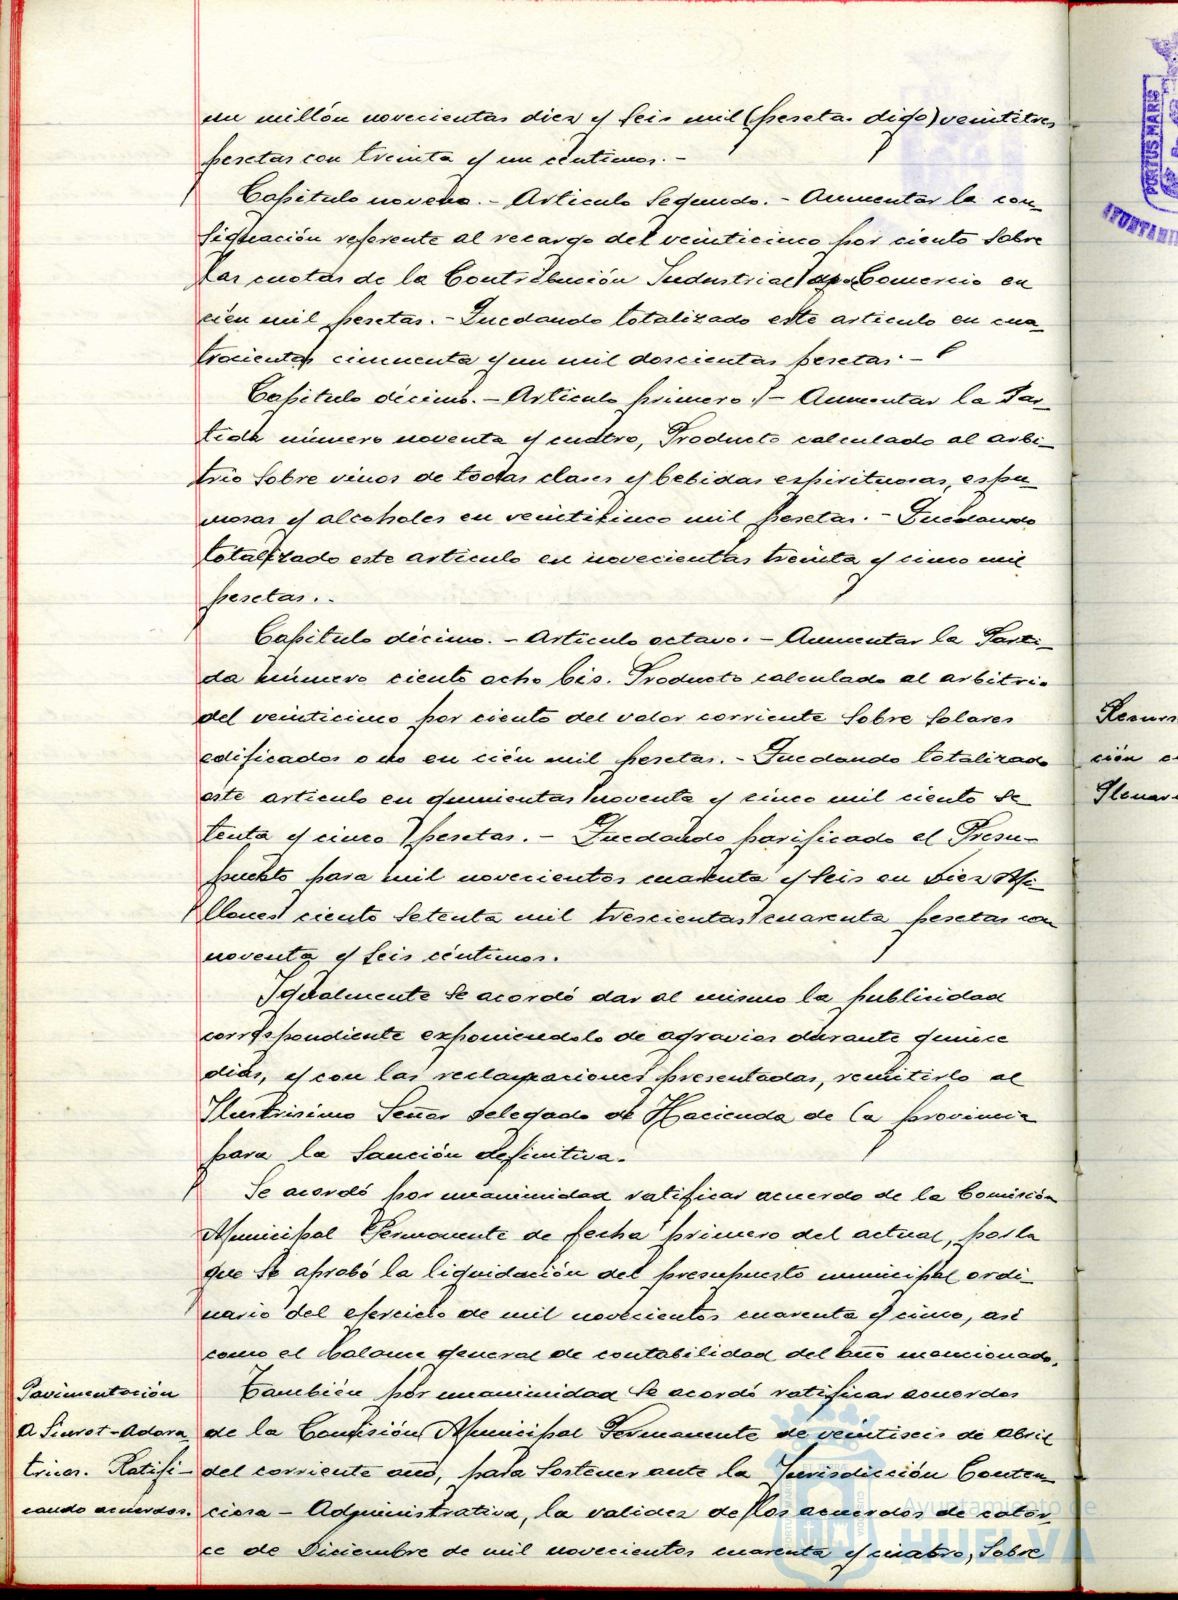 un millón novecientas diez y seis mil (pesetas digo) veintitres
pesetas con treinta y un céntimos.-
Capitulo noveno.- Articulo Segundo.- Aumentar la con-
signación referente al recargo del veinticinco por ciento sobre
las cuotas de la Contribución Industrial de Comercio en
cien mil pesetas.- Quedando totalizado este articulo en cua-
trocientas cincuenta y un mil doscientas pesetas.-
Capitulo décimo.- Articulo primero.- Aumentar la Par-
tida número noventa y cuatro, Producto calculado al arbi-
trio sobre vinos de todas clases y bebidas espirituosas, espu-
mosas y alcoholes en veinticinco mil pesetas.- Quedando
totalizado este articulo en novecientas treinta y cinco mil
pesetas..
Capitulo décimo.- Articulo octavo.- Aumentar la Parti-
da número ciento ocho bis. Producto calculado al arbitrio
del veinticinco por ciento del valor corriente sobre solares
edificados o no en cién mil pesetas.- Quedando totalizado
este articulo en quinientas noventa y cinco mil ciento se
tenta y cinco pesetas.- Quedando parificado el Presu-
puesto para mil novecientos cuarenta y seis en Diez Mi-
llones ciento setenta mil trescientas cuarenta pesetas con
noventa y seis céntimos.
Igualmente se acordó dar al mismo la publicidad
correspondiente exponiendolo de agravios durante quince
dias, y con las reclamaciones presentadas, remitirlo al
Ilustrisimo Señor Delegado de Hacienda de la provincia
para la Sanción definitiva.
Se acordó por unanimidad ratificar acuerdo de la Comisión
Municipal Permanente de fecha primero del actual, por la
que se aprobó la liquidación del presupuesto municipal ordi-
nario del ejercicio de mil novecientos cuarenta y cinco, asi
como el Balance general de contabilidad del año mencionado.
Pavimentación
a Siurot-Adora
trices. Ratifi-
cando acuerdos.
También por unanimidad se acordó ratificar acuerdos
de la Comisión Municipal Permanente de veintiseis de abril
del corriente año, para sostener ante la Jurisdicción Conten-
ciosa-Administrativa, la validez de los acuerdos de cator-
ce de Diciembre de mil novecientos cuarenta y cuatro, sobre
PORTUS MARIS
Recurs
ción c
Plenar
Ayuntamiento de
HUELVA